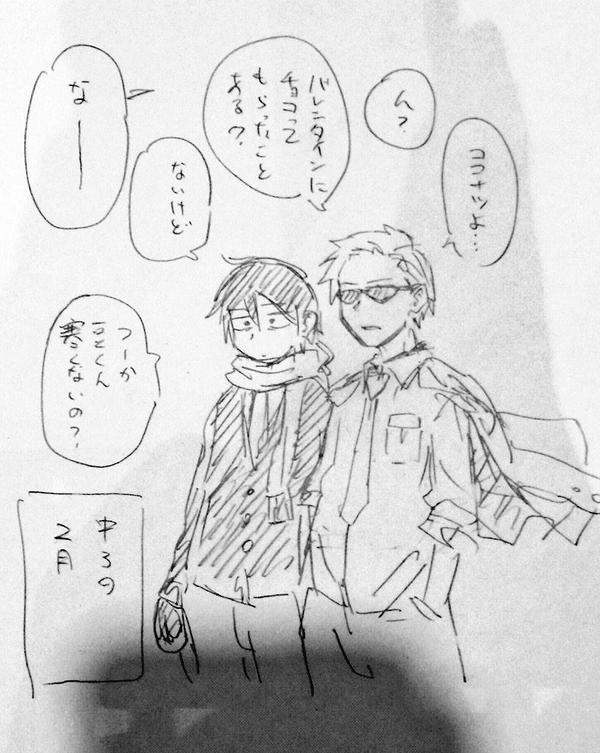 ココナツよ…
ん?
バレンタインに
チョコって
もらったこと
ある?
ないけど
なー
つーか
豆くん
寒くないの?
中3の
2月